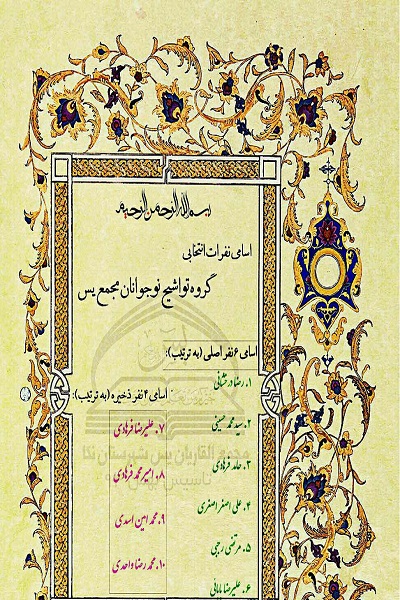 بسم الله الرحمن الرحیم
اسامی نفرات انتخابی
گروه تواشیح نوجوانان مجمع یس
اسامی ۶ نفر اصلی (به ترتیب):
۱. رضا درخشانی
۲. سید محمد حسینی
۳. حامد فرهادی
۴. علی اصغر اصغری
۵. مرتضی رجبی
۶. علیرضا بابائی
اسامی ۴ نفر ذخیره (به ترتیب):
۷. علیرضا فرهادی
۸. امیر محمد فرهادی
۹. محمد امین اسدی
۱۰. محمد رضا واحدی
مجمع القاریان یس شهرستان نکا
تاسیس